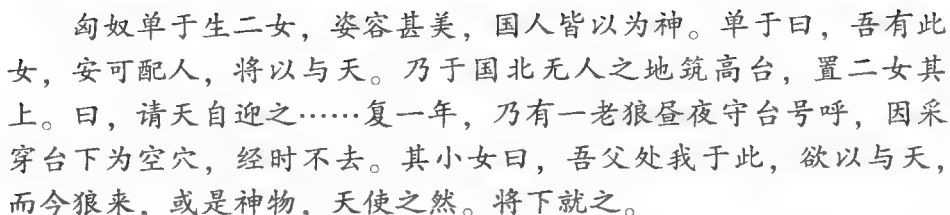 匈奴单于生二女，姿容甚美，国人皆以为神。单于曰，吾有此
女，安可配人，将以与天。乃于国北无人之地筑高台，置二女其
上。曰，请天自迎之……复一年，乃有一老狼昼夜守台号呼，因采
穿台下为空穴，经时不去。其小女曰，吾父处我于此，欲以与天，
而今狼来，或是神物，天使之然。将下就之。